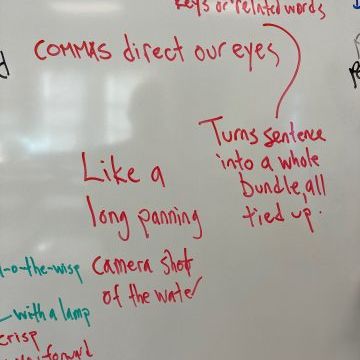 keys or related words
COMMAS direct our eyes
Turns sentence
into a whole
bundle, all
tied up.
Like a
long panning
camera shot
of the water
-o-the-wisp
with a lamp
crisp